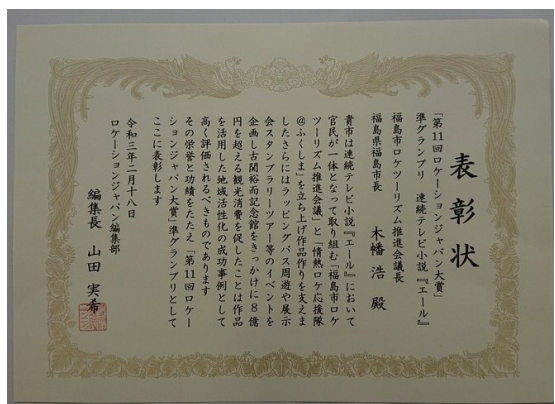 表彰状
「第11回ロケーションジャパン大賞」
準グランプリ 連続テレビ小説『エール』
福島市ロケツーリズム推進会議長
福島県福島市長 木幡 浩 殿
貴市は連続テレビ小説『エール』において
官民が一体となって取り組む「福島市ロケ
ツーリズム推進会議」と「情熱ロケ応援隊
@ふくしま」を立ち上げ作品作りを支えま
したさらにはラッピングバス周遊や展示
会スタンプラリーツアー等のイベントを
企画し古関裕而記念館をきっかけに8億
円を超える観光消費を促したことは作品
を活用した地域活性化の成功事例として
高く評価されるべきものであります
その栄誉と功績をたたえ「第11回ロケー
ションジャパン大賞」準グランプリとして
ここに表彰します
令和三年二月十八日
ロケーションジャパン編集部
編集長 山田 実希